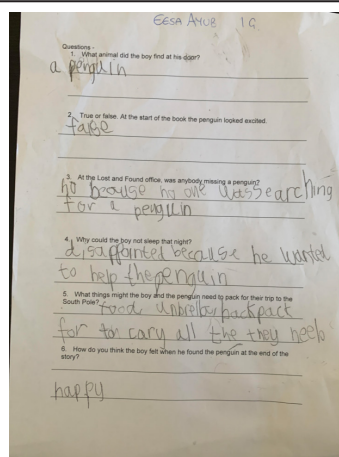 EESA AYUB 1G
Questions -
1. What animal did the boy find at his door?
a penguin
2. True or false. At the start of the book the penguin looked excited.
false
3. At the Lost and Found office, was anybody missing a penguin?
no because no one was searching
for a penguin
4. Why could the boy not sleep that night?
disappointed because he wanted
to help the penguin
5. What things might the boy and the penguin need to pack for their trip to the
South Pole? food backpact
for cary all the they
6. How do you think the boy felt when he found the penguin at the end of the
story?
happy